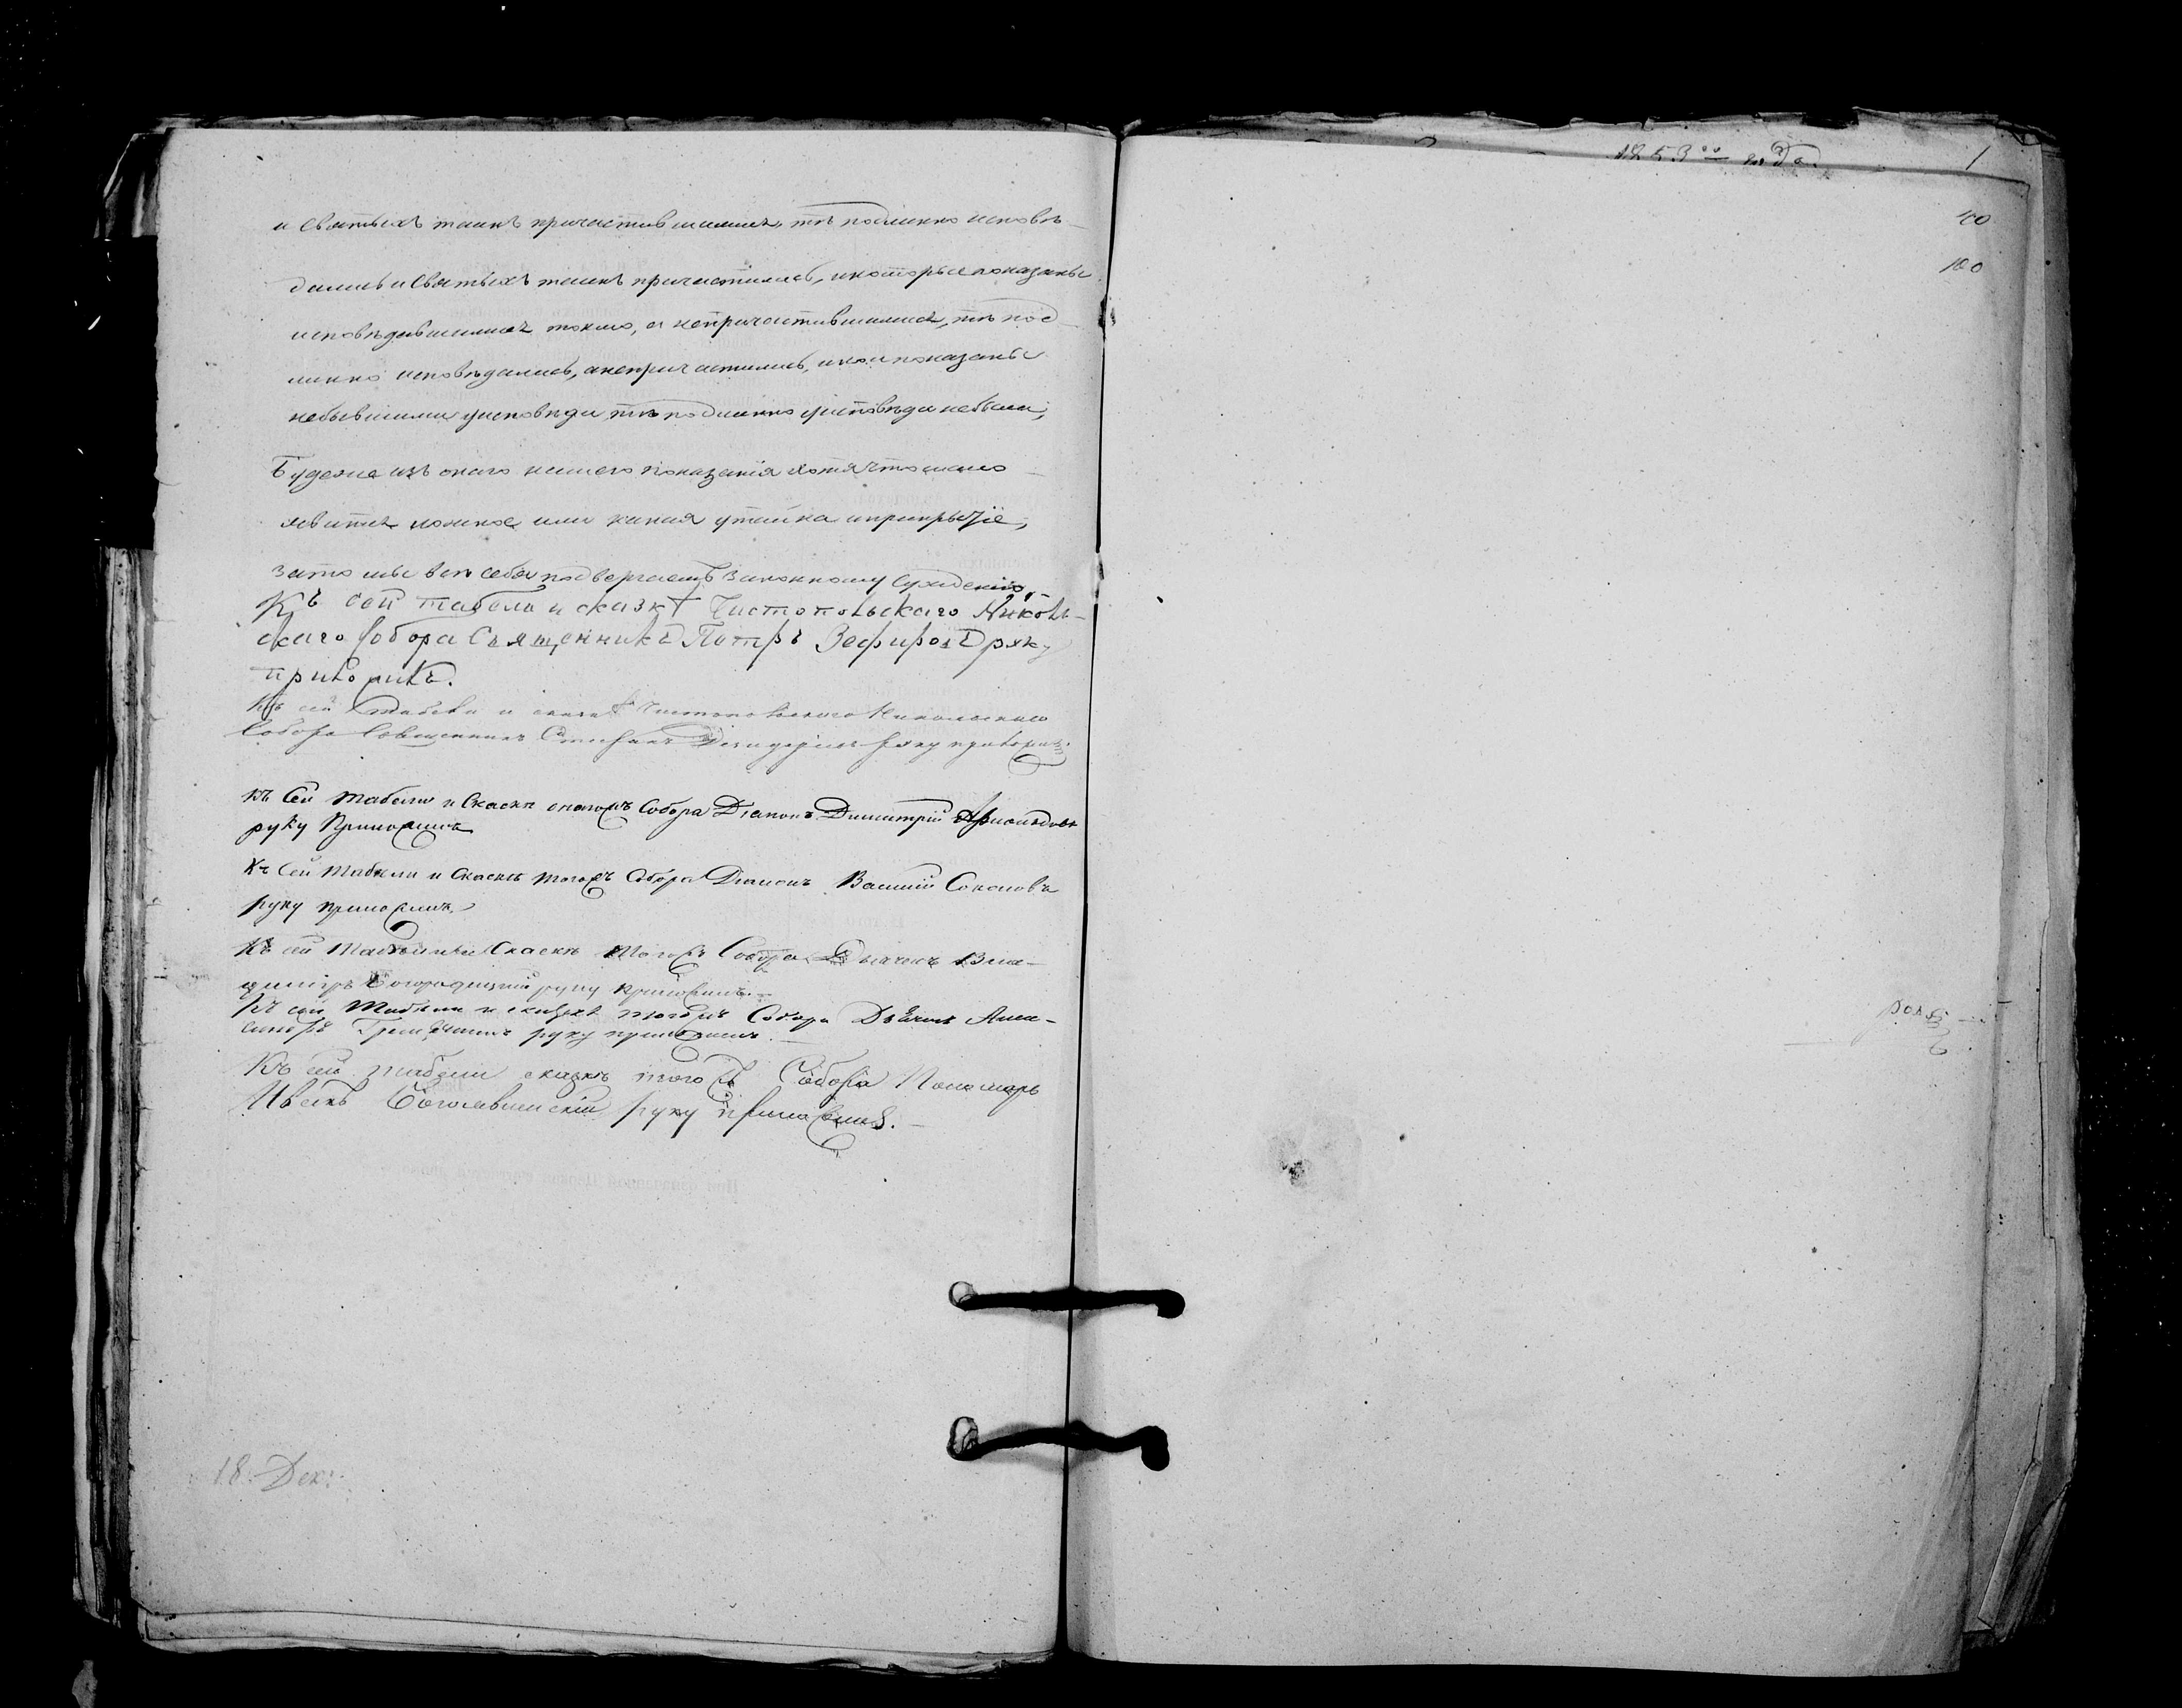 и Святыхъ таинъ причастившимися, тѣ подлинно исповѣ-
дались и Святыхъ таинъ причастились, и которые показаны
исповѣдавшимися токмо, а непричастившимися, тѣ под
линно исповѣдались, а непричастились, и кои показаны
небывшими у исповѣди, тѣ подлинно у исповѣди небыли;
Будеже изъ онаго нашего показанія хотя что мало
явится ложное или какая утайка и прикрытіе,
за то мы всѣ себя подвергаемъ законному сужденію,-
Къ сей табели и сказкѣ Чистопольскаго Николь-
скаго Собора Священникъ Петръ Зефировъ руку
приложилъ.
Къ сей табели и сказкѣ Чистопольскаго Никольскаго
Собора Священникъ Стефанъ руку приложилъ.
Къ Сей табели и Скаскѣ онагожъ Собора Діаконъ Димитрій
руку Приложилъ
Къ Сей табели и Скаскѣ тогожъ Собора Діаконъ Василій Соколовъ
руку приложилъ.
Къ сей Табели и Скаскѣ тогожъ Собора Дьячекъ Вла-
диміръ Богородицкій руку приложилъ.-
Къ сей табели и сказкѣ тогожъ Собора Дьячекъ Алек-
сандръ руку приложилъ.
Къ сей табели сказкѣ тогожъ Собора Пономарь
Иванъ Богоявленскій руку приложилъ.
18 Дек:
1853 го года.
1
40
100